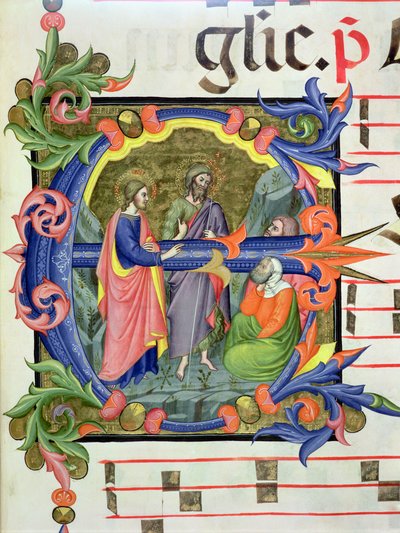 glic. p̄
E